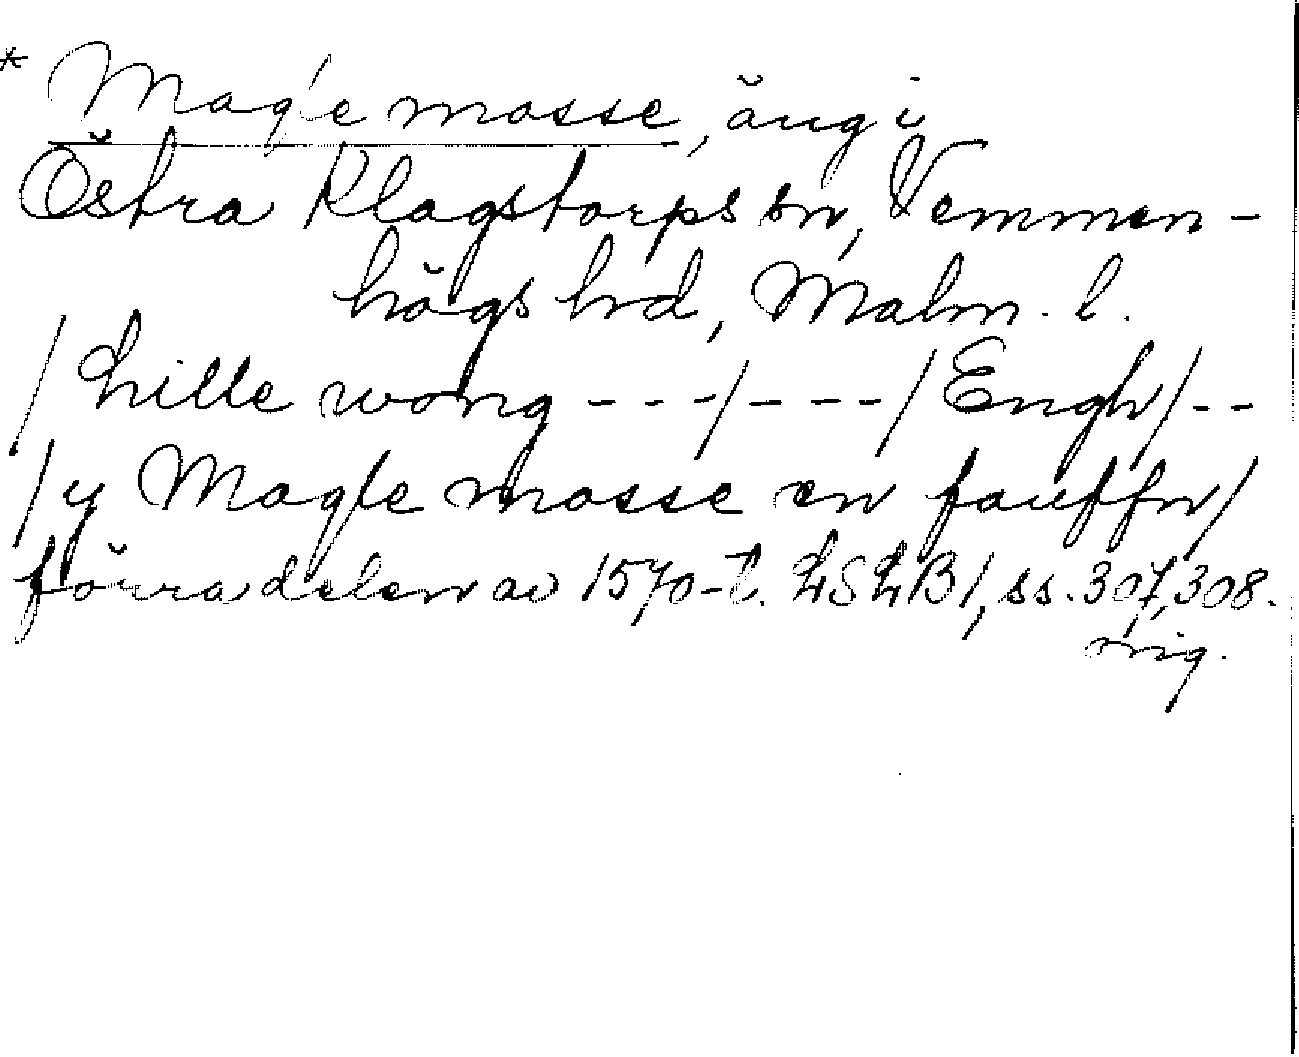 * Magle mosse, äng i
Östra Klagstorps sn, Vemmen-
högs hd, Malm. l.
/ Lille wong - - - / - - - / Engh / - -
/ y Magle mosse en fauffn /
förra delen av 1570-t. LSLB 1, ss. 307, 308.
orig.